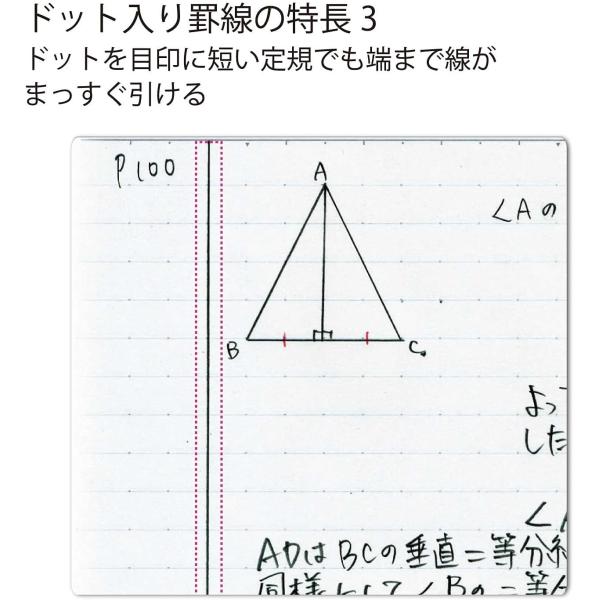 ドット入り罫線の特長 3
ドットを目印に短い定規でも端まで線が
まっすぐ引ける
P100
A
∠Aの
B
C
よっ
した
∠
ADはBCの垂直二等分
同様にして∠Bの二等分